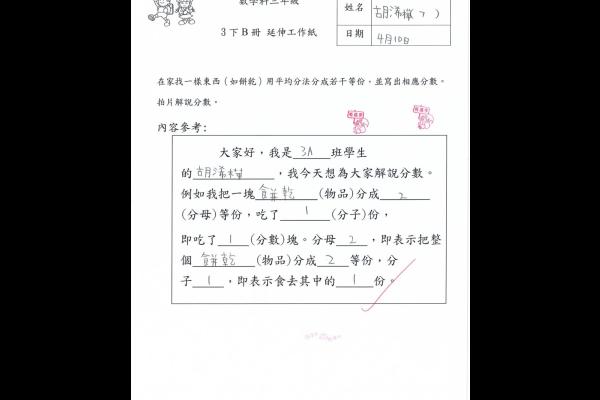 數學科三年級
3下B冊 延伸工作紙
姓名 胡浠楹(7)
日期 4月10日
在家找一樣東西(如餅乾)用平均分法分成若干等份,並寫出相應分數。
拍片解說分數。
內容參考:
大家好,我是 3A 班學生
的 胡浠楹 ,我今天想為大家解說分數。
例如我把一塊 餅乾 (物品)分成 2
(分母)等份,吃了 1 (分子)份,
即吃了 1 (分數)塊。分母 2 ,即表示把整
個 餅乾 (物品)分成 2 等份,分
子 1 ,即表示食去其中的 1 份。